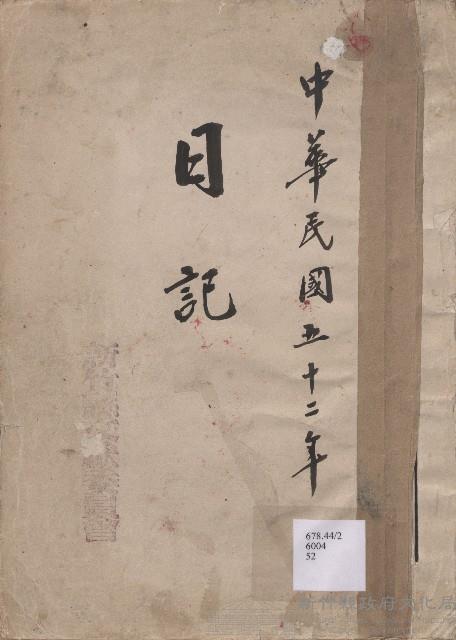 中華民國五十二年
日記
678.44/2
6004
52
新竹縣政府文化局